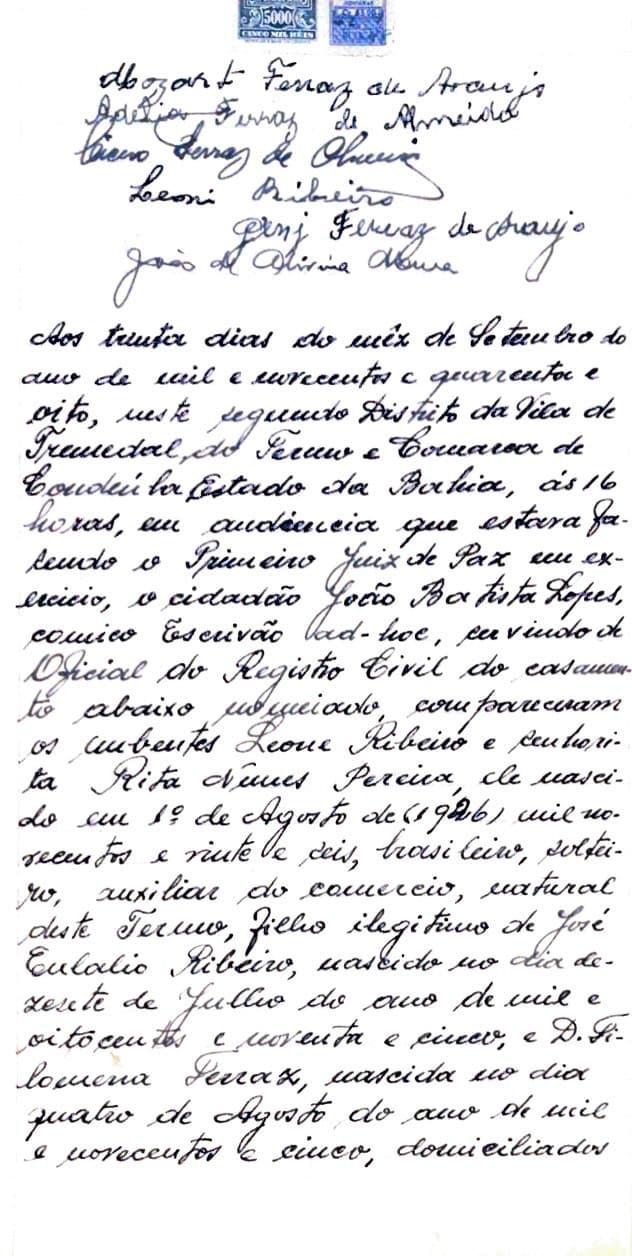 5000
CINCO MIL RÉIS
Mozart Ferraz de Araujo
Adelia Ferraz de Almeida
Cicero Ferraz de Oliveira
Leoni Ribeiro
Genj Ferraz de Araujo
João de Oliveira Moura
Aos trinta dias do mêz de Setembro do
ano de mil e novecentos e quarenta e
oito, neste segundo Distrito da Vila de
Tremedal, do Termo e Comarca de
Condeúba, Estado da Bahia, ás 16
horas, em audiencia que estava fa-
sendo o Primeiro Juiz de Paz em ex-
ercicio, o cidadão João Batista Lopes,
comico Escrivão ad-hoc, servindo de
Oficial do Registro Civil do casamen-
to abaixo nomeiado, compareceram
os nubentes Leone Ribeiro e senhori-
ta Rita Nunes Pereira, ele nasci-
do em 1º de Agosto de (1926) mil no-
vecentos e vinte e seis, brasileiro, soltei-
ro, auxiliar do comercio, natural
deste Termo, filho ilegitimo de José
Eulalio Ribeiro, nascido no dia de-
zesete de Julho do ano de mil e
oitocentos e noventa e cinco, e D. Fi-
lomena Ferraz, nascida no dia
quatro de Agosto do ano de mil
e novecentos e cinco, domiciliados